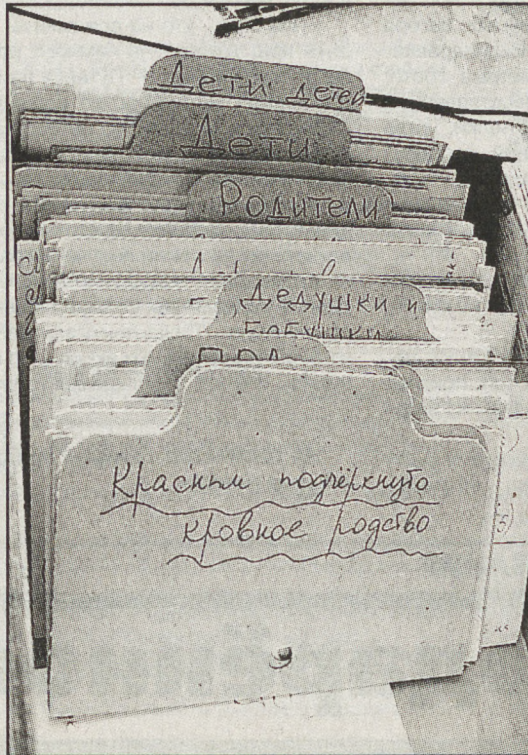 Дети детей
Дети
Родители
Дедушки и
Бабушки
ПРА
Красным подчёркнуто
кровное родство